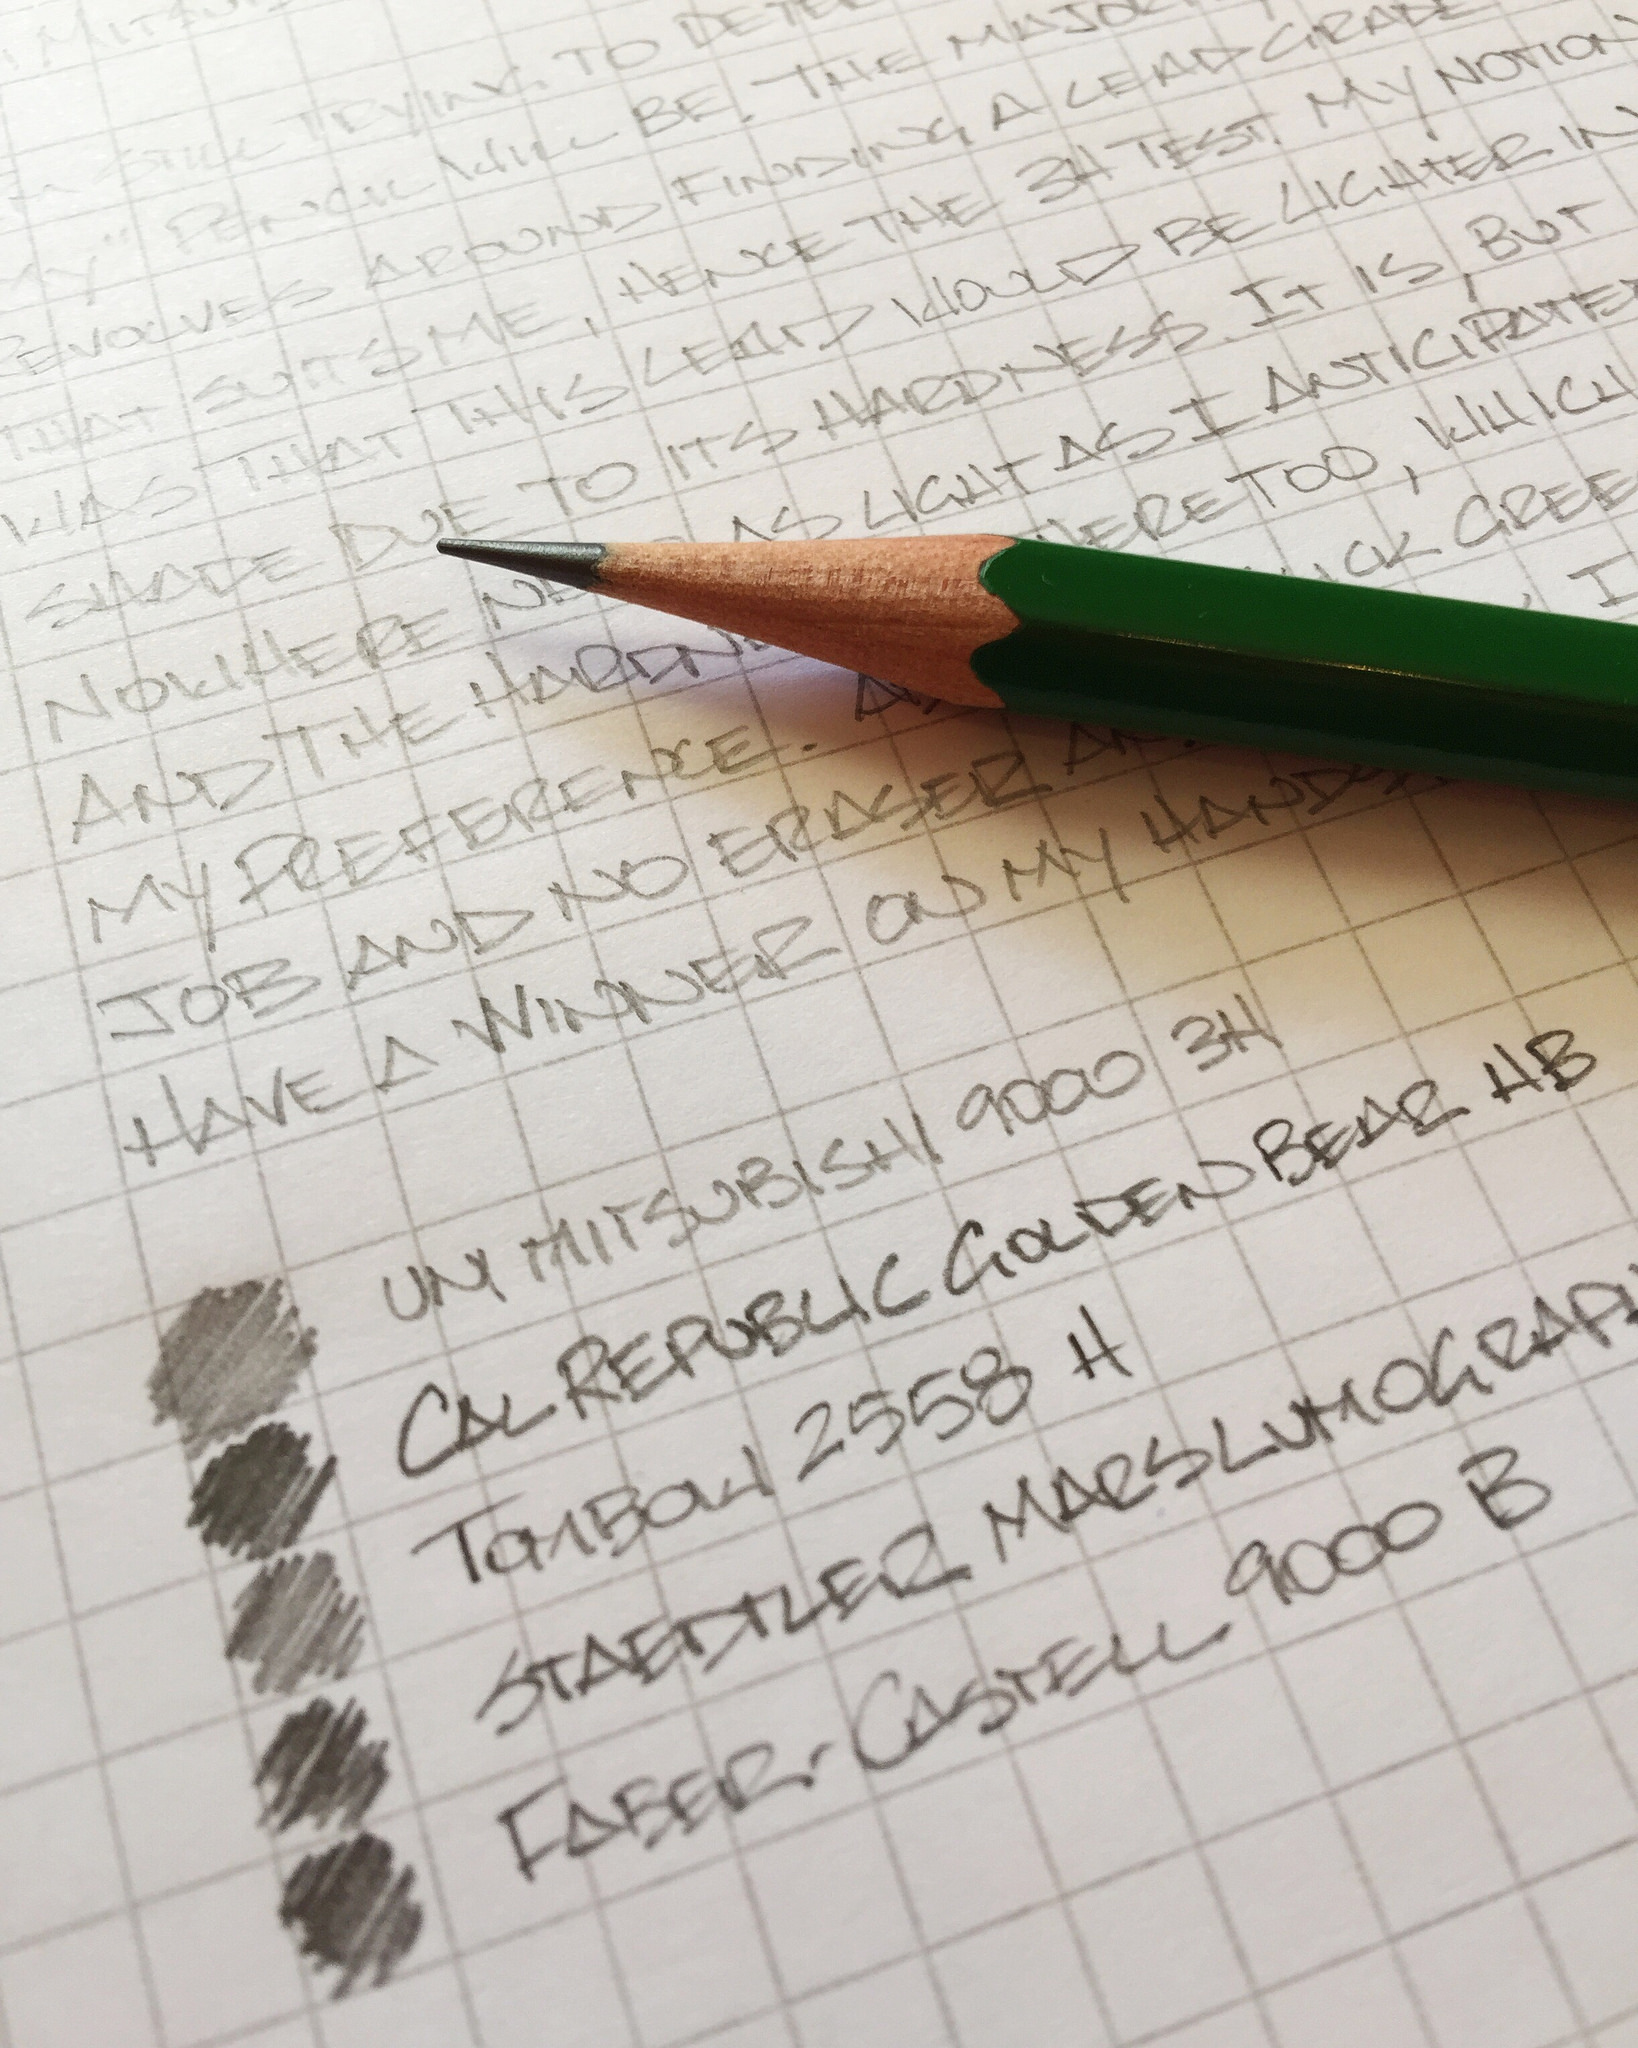 STILL TRYING TO
MY" PENCIL WILL BE. THE
REVOLVES AROUND FINDING A LEAD GRADE
THAT SUITS ME, HENCE THE 3H TEST. MY NOTION
WAS THAT THIS LEAD WOULD BE LIGHTER IN
SHADE DUE TO ITS HARDNESS. IT IS, BUT
NOWHERE AS LIGHT AS I ANTICIPATED
AND THE HERE TOO, WHICH
MY PREFERENCE.
JOB AND NO ERASER
HAVE A WINNER ON MY
UNI MITSUBISHI 9000 3H
CAL REPUBLIC GOLDEN BEAR HB
TOMBOW 2558 H
STAEDTLER MARS
FABER-CASTELL 9000 B